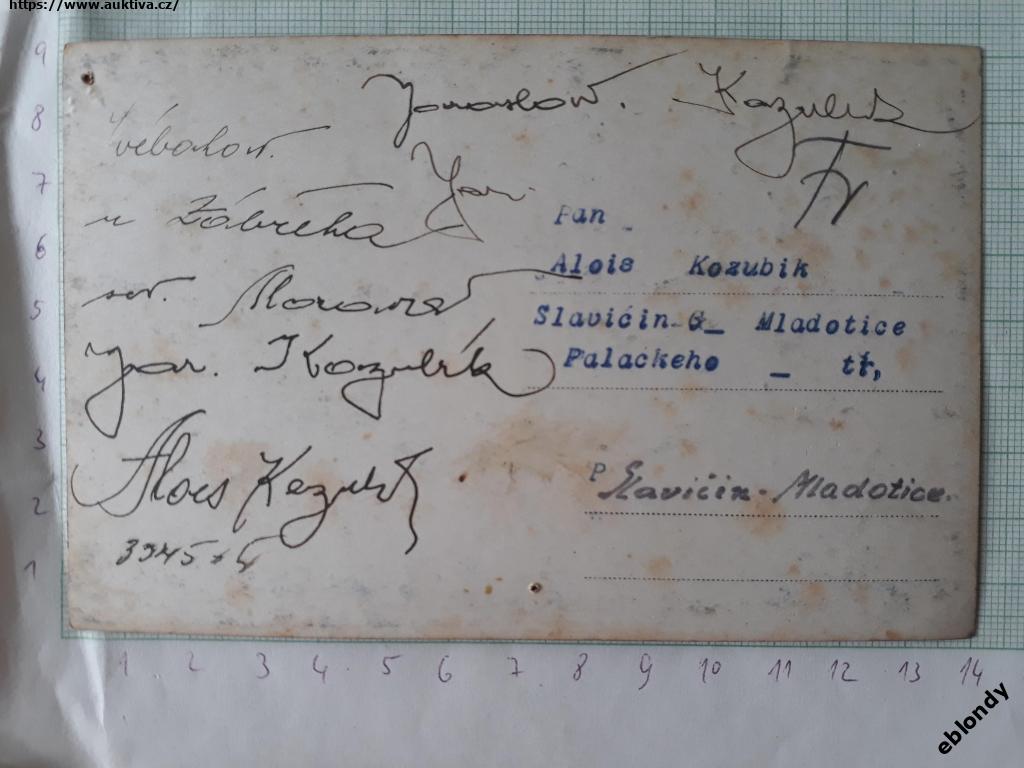 https://www.auktiva.cz/
Jaroslav. Kozubík
Fr
Jar.
u Zábřeha
sev. Morava
Jar. Kozubík
Alois Kozubík
Pan
Alois Kozubik
Slavićin-G_ Mladotice
Palackeho _ tř,
P Slavičín-Mladotice.
9
8
7
6
5
4
3
2
1
1 2 3 4 5 6 7 8 9 10 11 12 13 14
eblondy